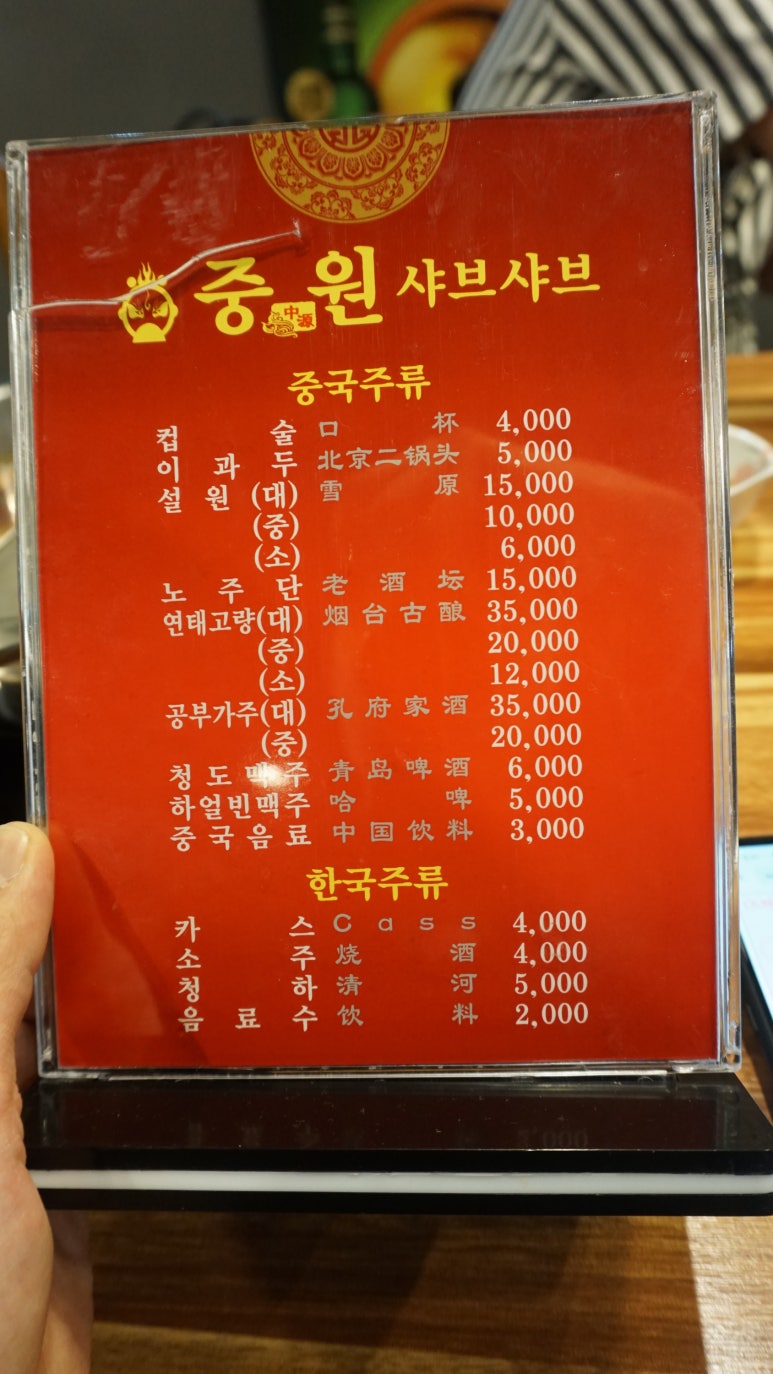 중원 샤브샤브
中源
중국주류
컵술 口杯 4,000
이과두 北京二锅头 5,000
설원 (대) 雪原 15,000
(중) 10,000
(소) 6,000
노주단 老酒坛 15,000
연태고량(대) 烟台古酿 35,000
(중) 20,000
(소) 12,000
공부가주(대) 孔府家酒 35,000
(중) 20,000
청도맥주 青岛啤酒 6,000
하얼빈맥주 哈啤 5,000
중국음료 中国饮料 3,000
한국주류
카스 Cass 4,000
소주 烧酒 4,000
청하 清河 5,000
음료수 饮料 2,000